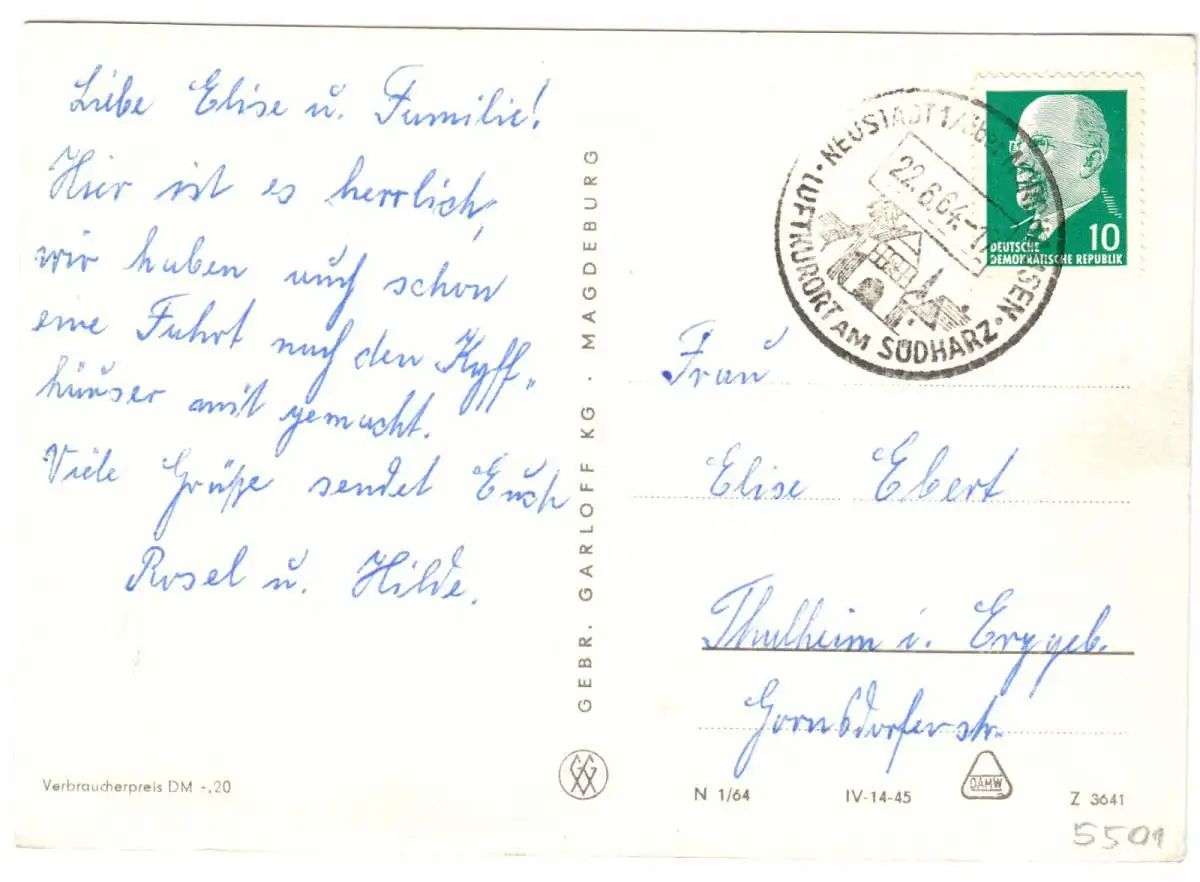 Liebe Elise u. Familie!
Hier ist es herrlich,
wir haben auch schon
eine Fahrt nach den Kyff„
häuser mit gemacht.
Viele Grüße sendet Euch
Rosel u. Hilde.
Verbraucherpreis DM -,20
GEBR. GARLOFF KG · MAGDEBURG
NEUSTADT 1/ NORDHAUSEN
22.6.64.-1
LUFTKURORT AM SÜDHARZ
10
DEUTSCHE
DEMOKRATISCHE REPUBLIK
Frau
Elise Ebert
Thalheim i. Erzgeb.
Gornsdorferstr.
N 1/64
IV-14-45
DAMW
Z 3641
5501